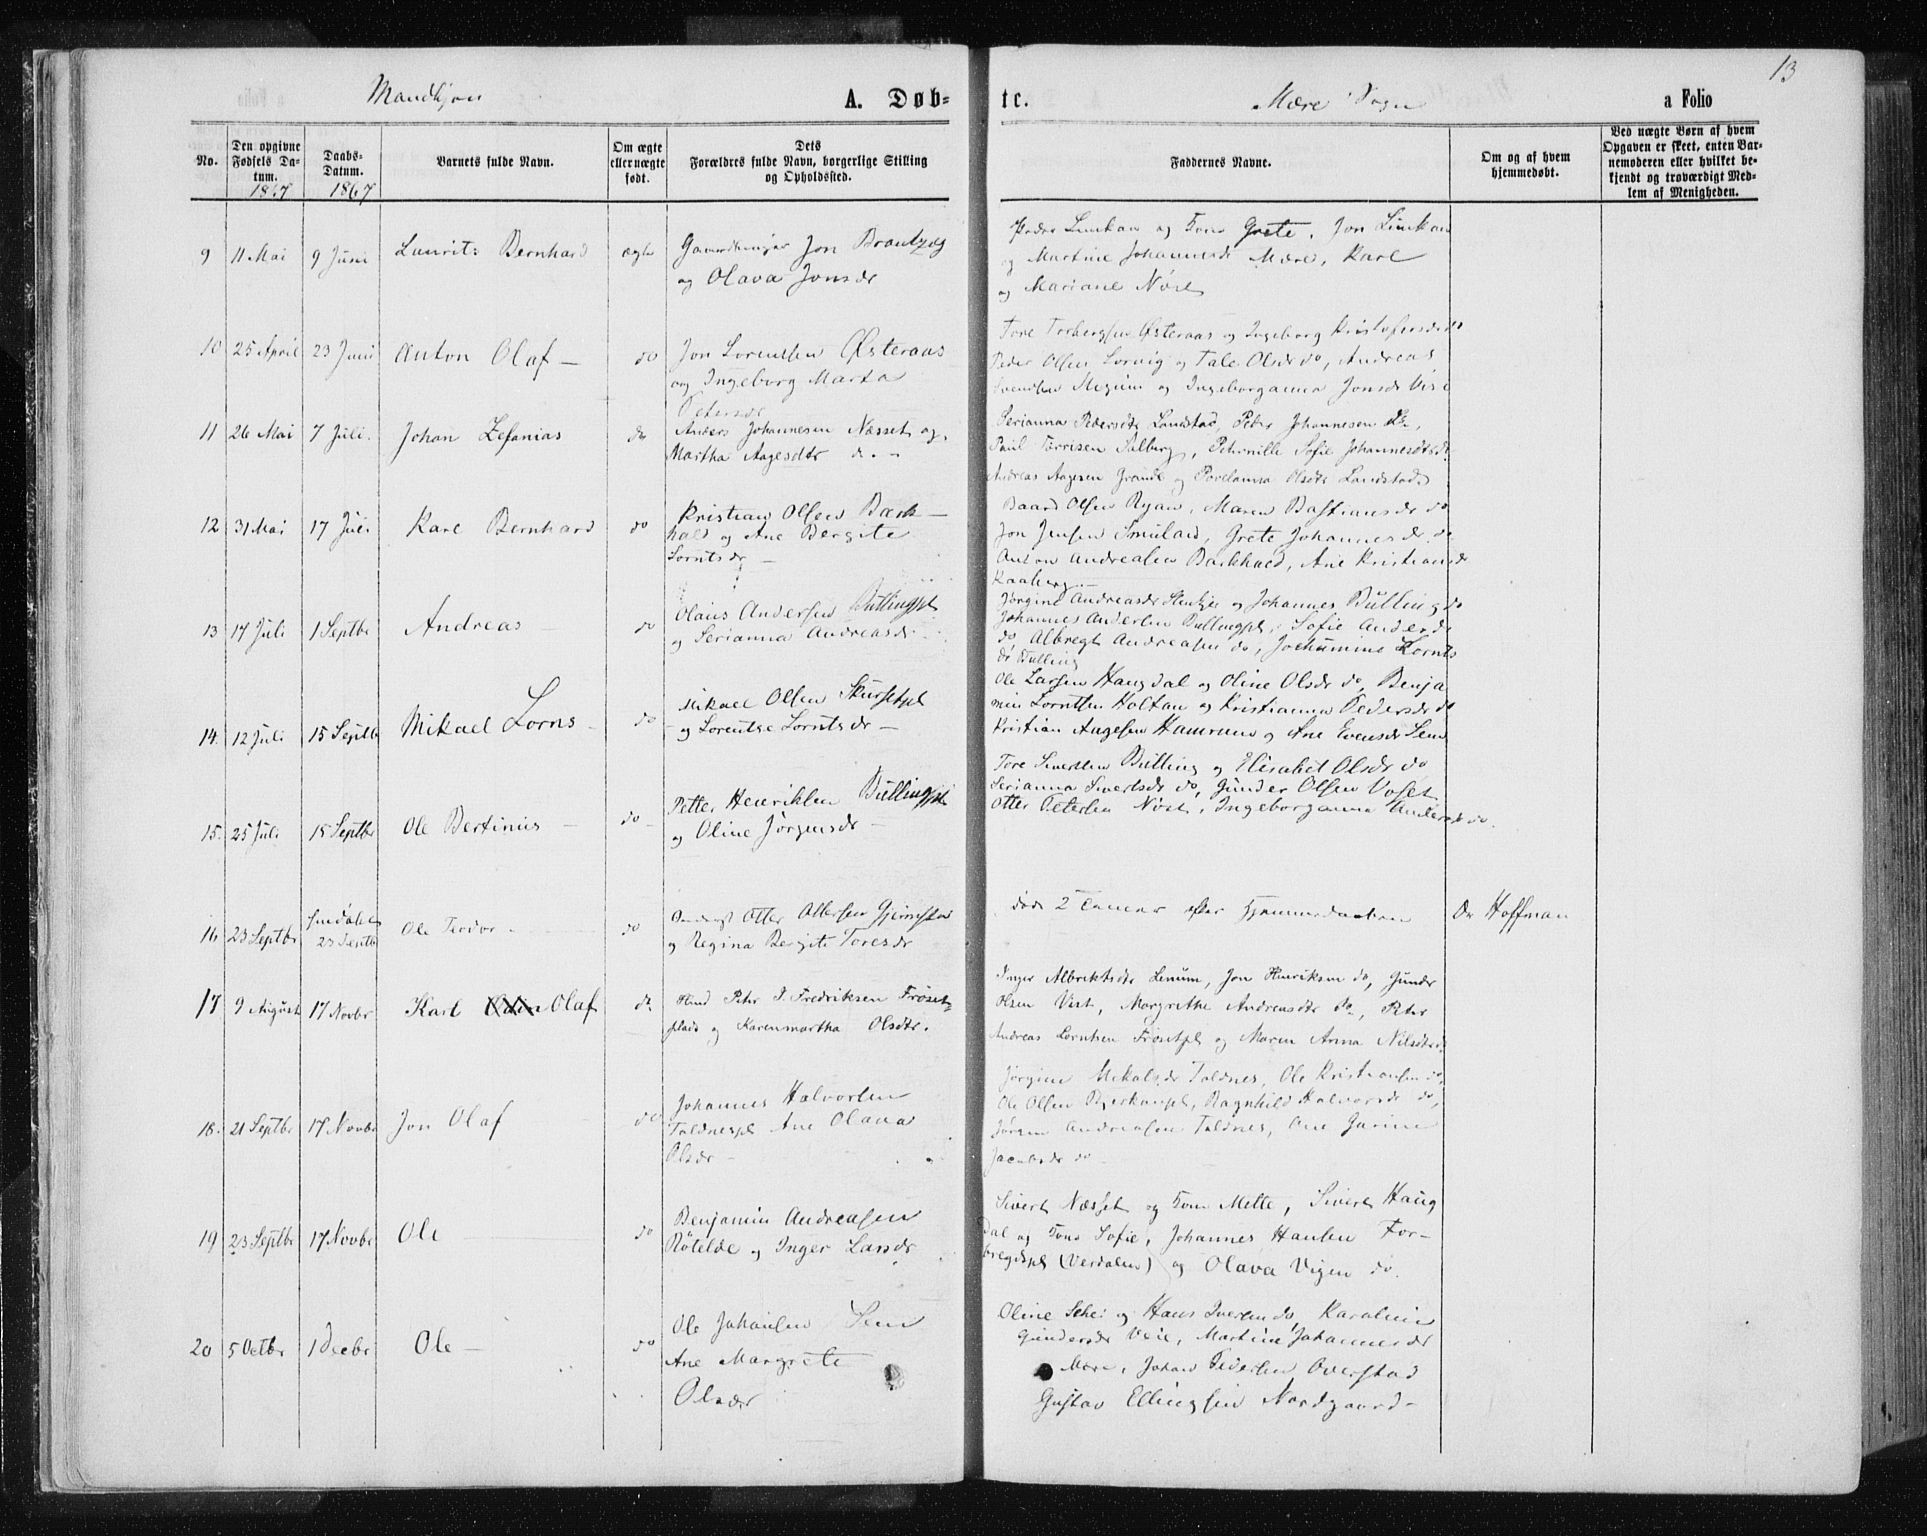 13
Mandkjøn A. Døb- te. Mære Sogn a Folio
No.
Den opgivne Fødsels Da- tum. 1867
Daabs- Datum. 1867
Barnets fulde Navn.
Om ægte eller uægte født.
Dets Forældres fulde Navn, borgerlige Stilling og Opholdssted.
Faddernes Navne.
Om og af hvem hjemmedøbt.
Ved uægte Børn af hvem Opgaven er skeet, enten Bar- nemoderen eller hvilket be- kjendt og troværdigt Med- lem af Menigheden.
9 11 Mai 9 Juni Laurits Bernhard ægte
Gaardbruger Jon Brautzeg
og Olava Jonsdr
Peder Linkan og Kone Grete, Jon Linkan
og Martine Johannesdr Mære, Karl
og Mariane Nøst
10 25 April 23 Juni Anton Olaf — do
Jon Lorentsen Østeraas
og Ingeborg Marta
Petersdr
Tore Torbergsen Østeraas og Ingeborg Kristofersdr do
Peder Olsen Lorvig og Tale Olsdr do, Andreas
Svendsen Megum og Ingeborganna Jonsdr Vist
11 26 Mai 7 Juli. Johan Zefanias do
Anders Johannesen Næsset og
Martha Aagesdtr do. -
Serianna Pedersdtr Landstad, Peder Johannesen do,
Paul Torrisen Salberg, Pehrnille Sofie Johannesdtr do
Andreas Aagesen Grande og Porelanna Olsdtr Landstad
12 31 Mai 17 Juli Karl Bernhard do
Kristian Olsen Bark-
hald og Ane Bergite
Lorntsdr —
Baard Olsen Ryan, Maren Bastiansdr do
Jon Jensen Småland, Grete Johannesdr do
Anton Andreasen Barkhald, Ane Kristiansdr
Kaaberg —
13 17 Juli 1 Septbr Andreas — do
Olaus Andersen Bullingpl
og Serianna Andreasdr
Jørgine Andreasdr Stenkjer og Johannes Bulling do
Johannes Andersen Bullingpl, Sofie Andersdr
do Albregt Andreasen do, Jochumine Lornts
dr Bulling
14. 12 Juli 15 Septbr Mikael Lorns - do
Mikael Olsen Skursetpl
- og Lorentse Lorntsdr —
Ole Larsen Haugdal og Oline Olsdr do, Benja
min Lorntsen Holtan og Kristianna Pedersdr do
Kristian Aagesen Hammrum og Ane Evensdr Sem
15. 25 Juli 15 Septbr Ole Bertinius — do
Petter Henriksen Bullingpl
og Oline Jørgensdr —
Tore Sivertsen Bulling og Elisabet Olsdr do
Serianna Sivertsdr do, Gunder Olsen Voset
Otter Petersen Nøst, Ingeborganna Andersdr do.
16 23 Septbr 23 Septb Ole Teodor do
Otter Ottersen Gjermstad
og Regina Bergite Toresdr
døde 2 Timer efter Hjemmedaaben
Dr Hoffman
17 9 August 17 Novbr Karl Olaf do
Hmd Petr J. Fredriksen Frøset-
plads og Karenmartha Olsdtr.
Inger Albriktsdtr Lenum, Jon Henriksen do, Gunder
Olsen Vist, Margrethe Andreasdtr do, Peter
Andreas Lorntsen Frøsetpl og Maren Anna Nilsdtr do
18. 21 Septbr 17 Novbr Jon Olaf do
Johannes Halvorsen
Toldnespl Ane Olava
Olsdr —
Jørgine Mikalsdr Toldnes, Ole Kristiansen do,
Ole Olsen Bjerkanpl, Ragnhild Halvorsdr do,
Jørgen Andreasen Toldnes, Ane Gurine
Jacobsdr do
19 23 Septbr 17 Novbr Ole — do
Benjamin Andreasen
Røtelde og Inger Larsdr
Sivert Næsset og Kone Mette, Sivert Haug
dal og Kone Sofie, Johannes Hansen For-
bregdspl (Verdalen) og Olava Vigen do.
20 5 Octbr 1 Decbr Ole — do
Ole Johansen Sem
Ane Margrete
Olsdr
Oline Schei og Hans Iversen do, Karoline
Gundersdr Veie, Martine Johannesdr
Mære, Johan Pedersen Overstad
Gustav Ellingsen Nordgaard -